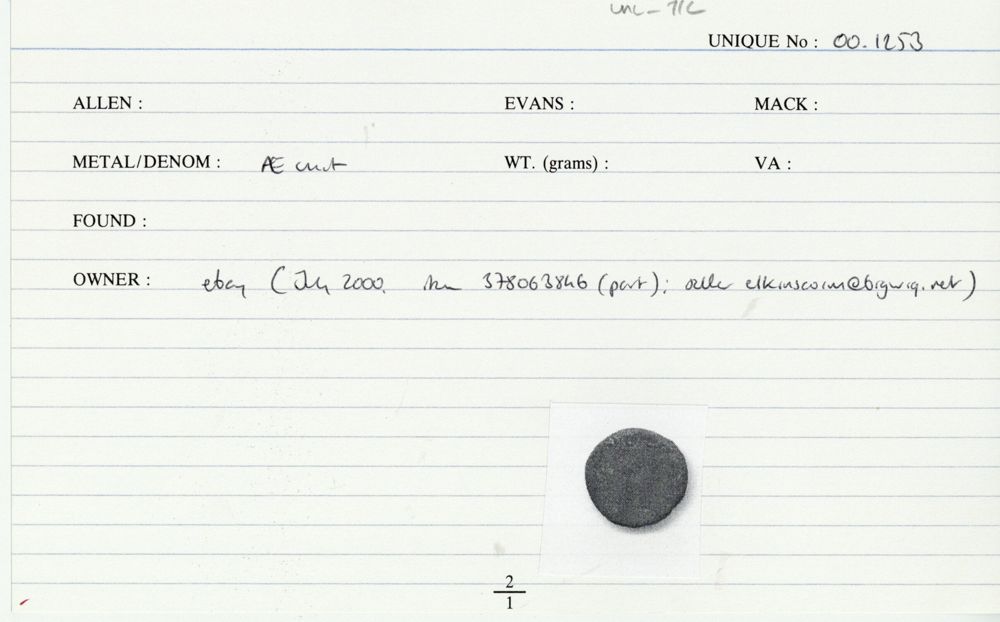 UNC - TIC
UNIQUE No : 00.1253
ALLEN : EVANS : MACK :
METAL/DENOM : Æ unit WT. (grams) : VA :
FOUND :
OWNER : ebay (July 2000. item 378063846 (part); seller elkinscoin@bigwig.net)
2
1